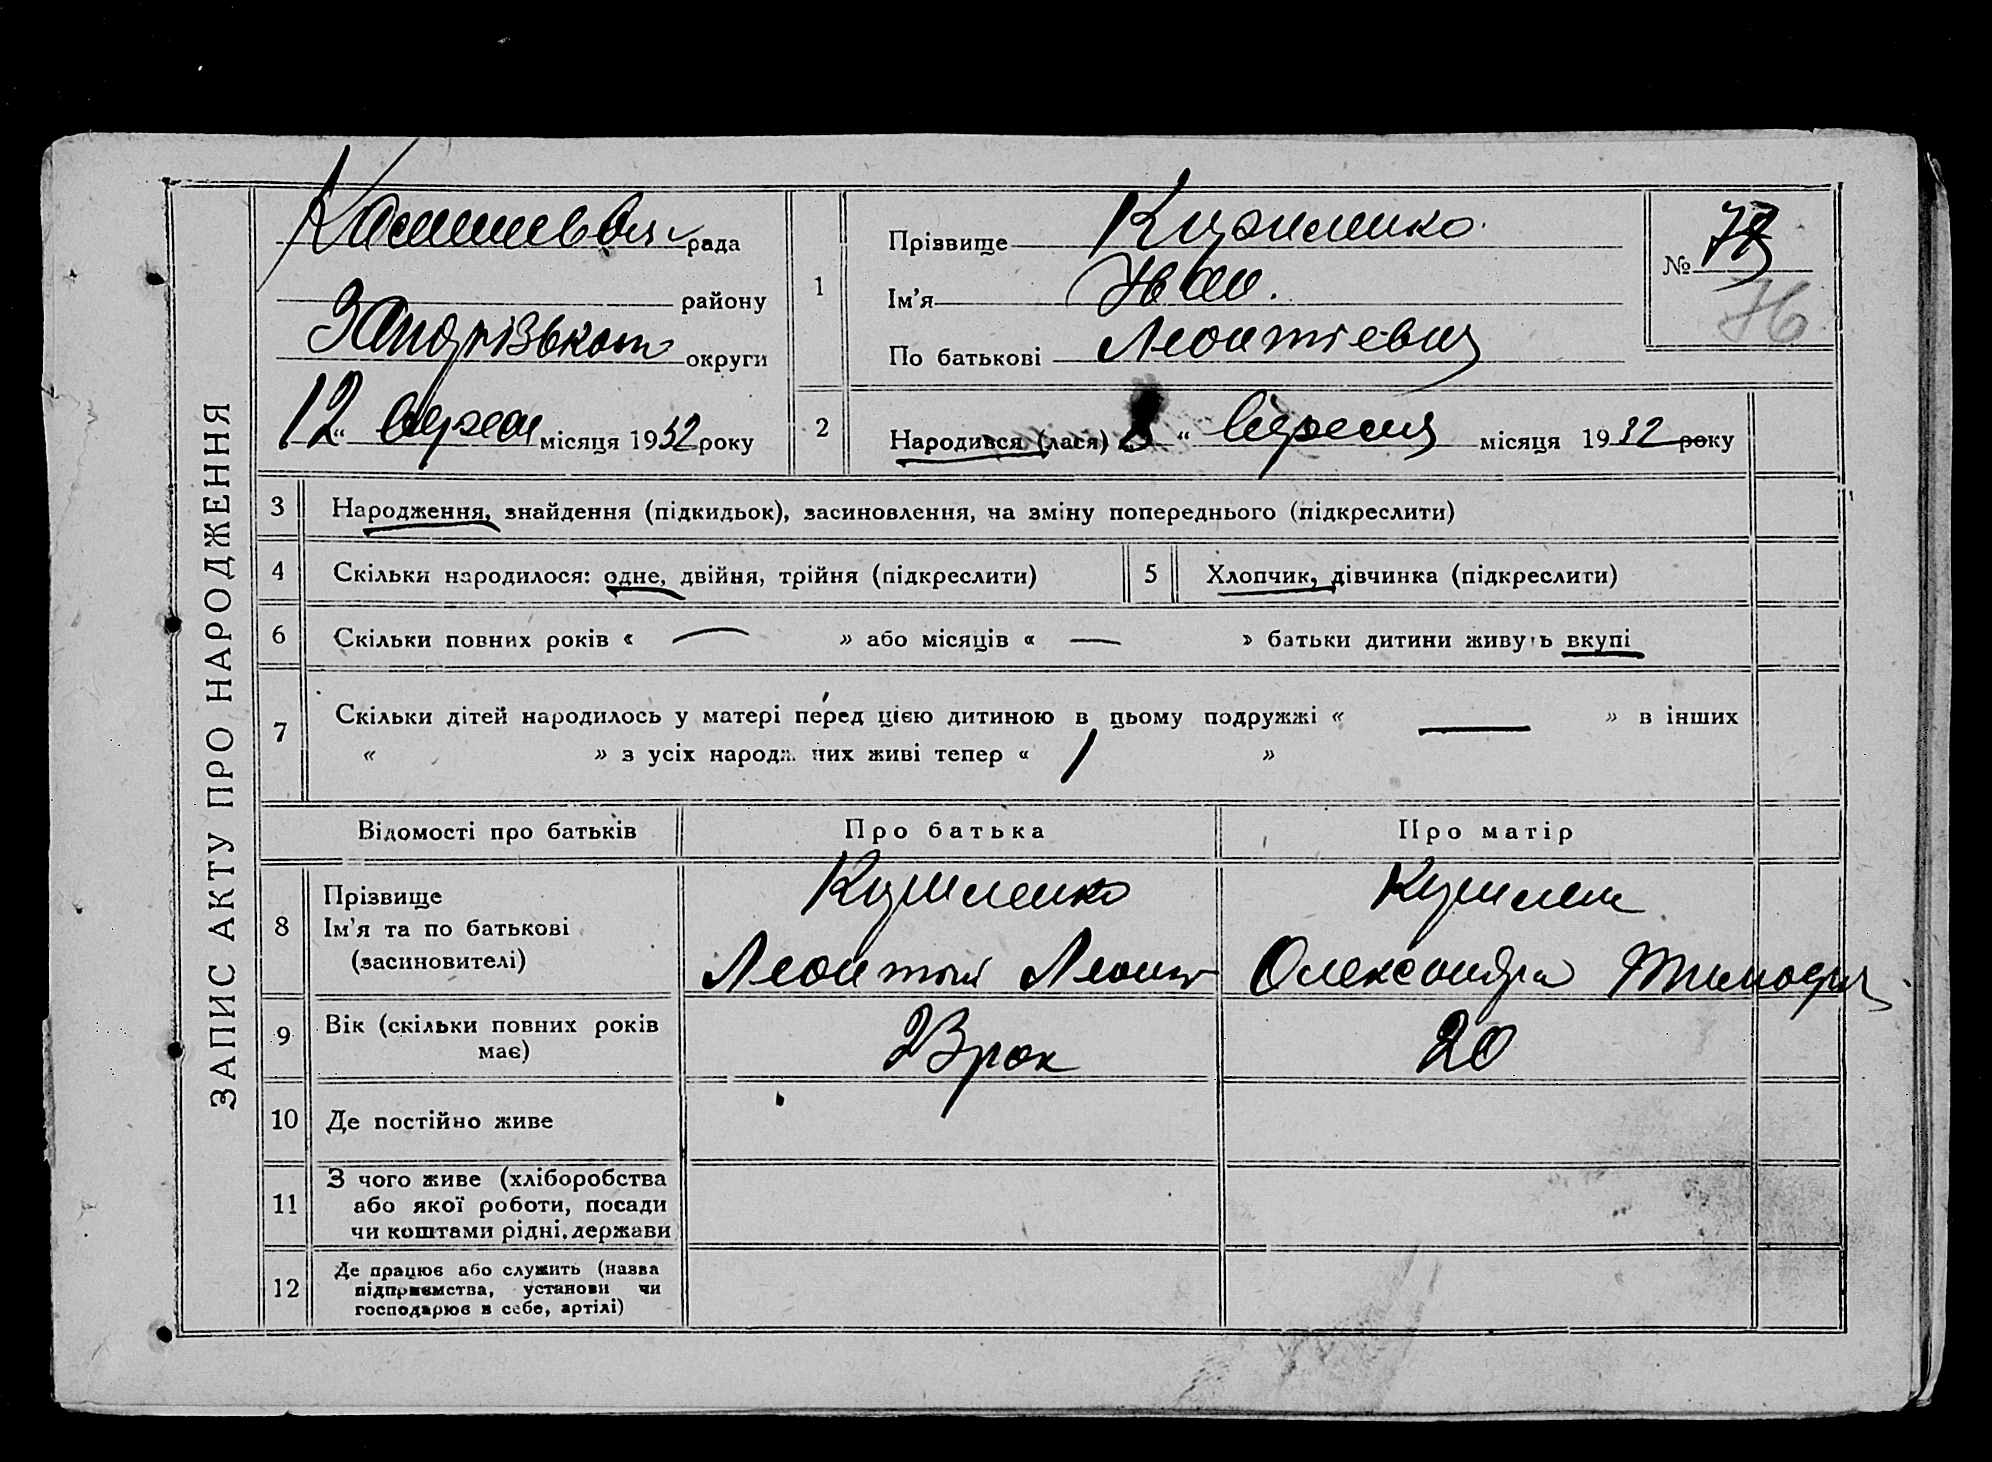 ЗАПИС АКТУ ПРО НАРОДЖЕННЯ
рада
району
округи
12 " вересн місяця 1932 року
1
Прізвище
Ім'я Іван.
По батькові Леонтієвич
№
76
2
Народився (лася) 8 " вересня місяця 1932 року
3 Народження, знайдення (підкидьок), засиновлення, на зміну попереднього (підкреслити)
4 Скільки народилося: одне, двійня, трійня (підкреслити)
5 Хлопчик, дівчинка (підкреслити)
6 Скільки повних років « — » або місяців « — » батьки дитини живуть вкупі
7 Скільки дітей народилось у матері перед цією дитиною в цьому подружжі « — » в інших
« » з усіх народж них живі тепер « 1 »
Відомості про батьків Про батька Про матір
8
Прізвище
Ім'я та по батькові
(засиновителі)
Леонтій Леонт
Олександра
9 Вік (скільки повних років
має)
23 рок
20
10 Де постійно живе
11
З чого живе (хліборобства
або якої роботи, посади
чи коштами рідні, держави
12
Де працює або служить (назва
підприємства, установи чи
господарює в себе, артілі)